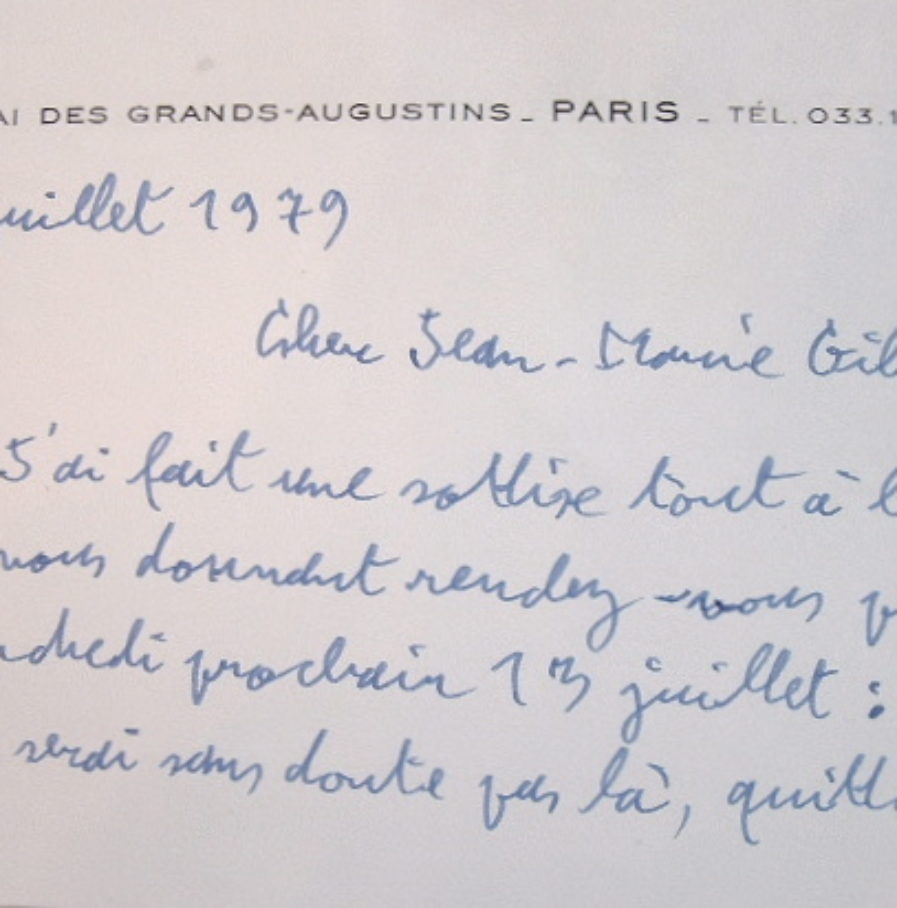 AI DES GRANDS-AUGUSTINS_ PARIS _ TÉL. 033.1
uillet 1979
Cher Jean-Marie Gil
J'ai fait une sottise tout à l
vous donnant rendez-vous p
ndredi prochain 13 juillet :
serai sans doute pas là, quitt